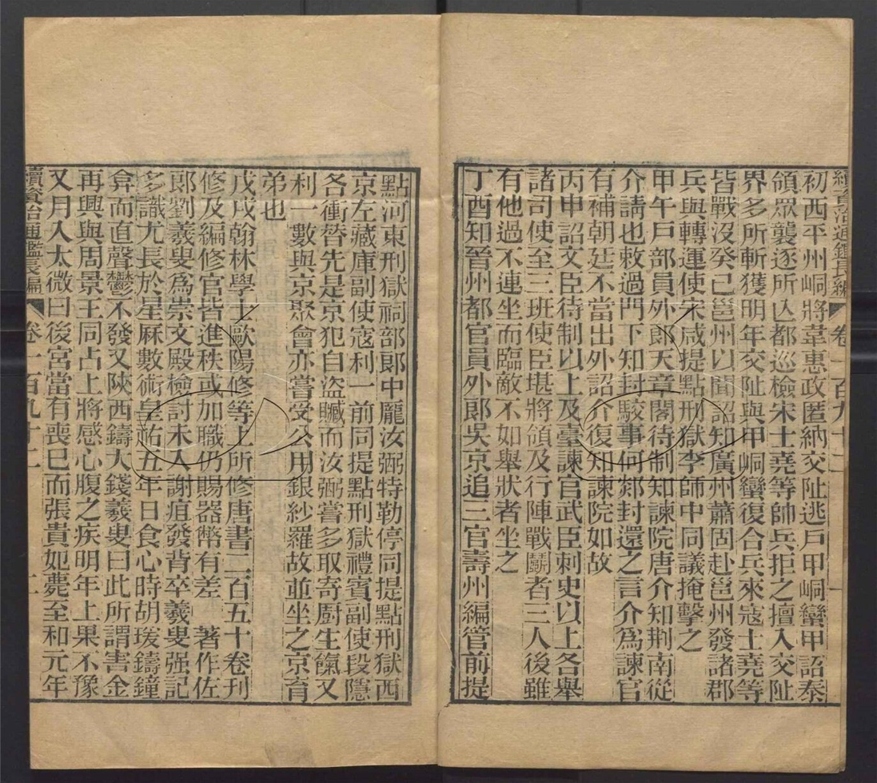 續資治通鑑長編 卷一百九十二 一
初西平州峒將韋惠政匿納交阯逃戸甲峒蠻甲詔泰
領眾襲逐所亾都巡檢宋士堯等帥兵拒之擅入交阯
界多所斬獲明年交阯與甲峒蠻復合兵來寇士堯等
皆戰沒癸巳邕州以聞詔知廣州蕭固赴邕州發諸郡
兵與轉運使宋咸提點刑獄李師中同議掩擊之
甲午戸部員外郞天章閣待制知諫院唐介知荆南從
介請也敕過門下知封駮事何郯封還之言介爲諫官
有補朝廷不當出外詔介復知諫院如故
丙申詔文臣待制以上及臺諫官武臣刺史以上各舉
諸司使至三班使臣堪將領及行陣戰鬭者三人後雖
有他過不連坐而臨敵不如舉狀者坐之
丁酉知晉州都官員外郞吳京追三官壽州編管前提
點河東刑獄祠部郞中龐汝弼特勒停同提點刑獄西
京左藏庫副使寇利一前同提點刑獄禮賓副使段隱
各衝替先是京犯自盜贓而汝弼嘗多取寄廚生餼又
利一數與京聚會亦嘗受公用銀紗羅故並坐之京育
弟也
戊戌翰林學士歐陽修等上所修唐書二百五十卷刋
修及編修官皆進秩或加職仍賜器幣有差 著作佐
郞劉羲叟爲崇文殿檢討未入謝疽發背卒羲叟强記
多識尤長於星厤數術皇祐五年日食心時胡瑗鑄鐘
弇而直聲鬱不發又陝西鑄大錢羲叟曰此所謂害金
再興與周景王同占上將感心腹之疾明年上果不豫
又月入太微曰後宮當有喪巳而張貴妃薨至和元年
續資治通鑑長編 卷一百九十二 二